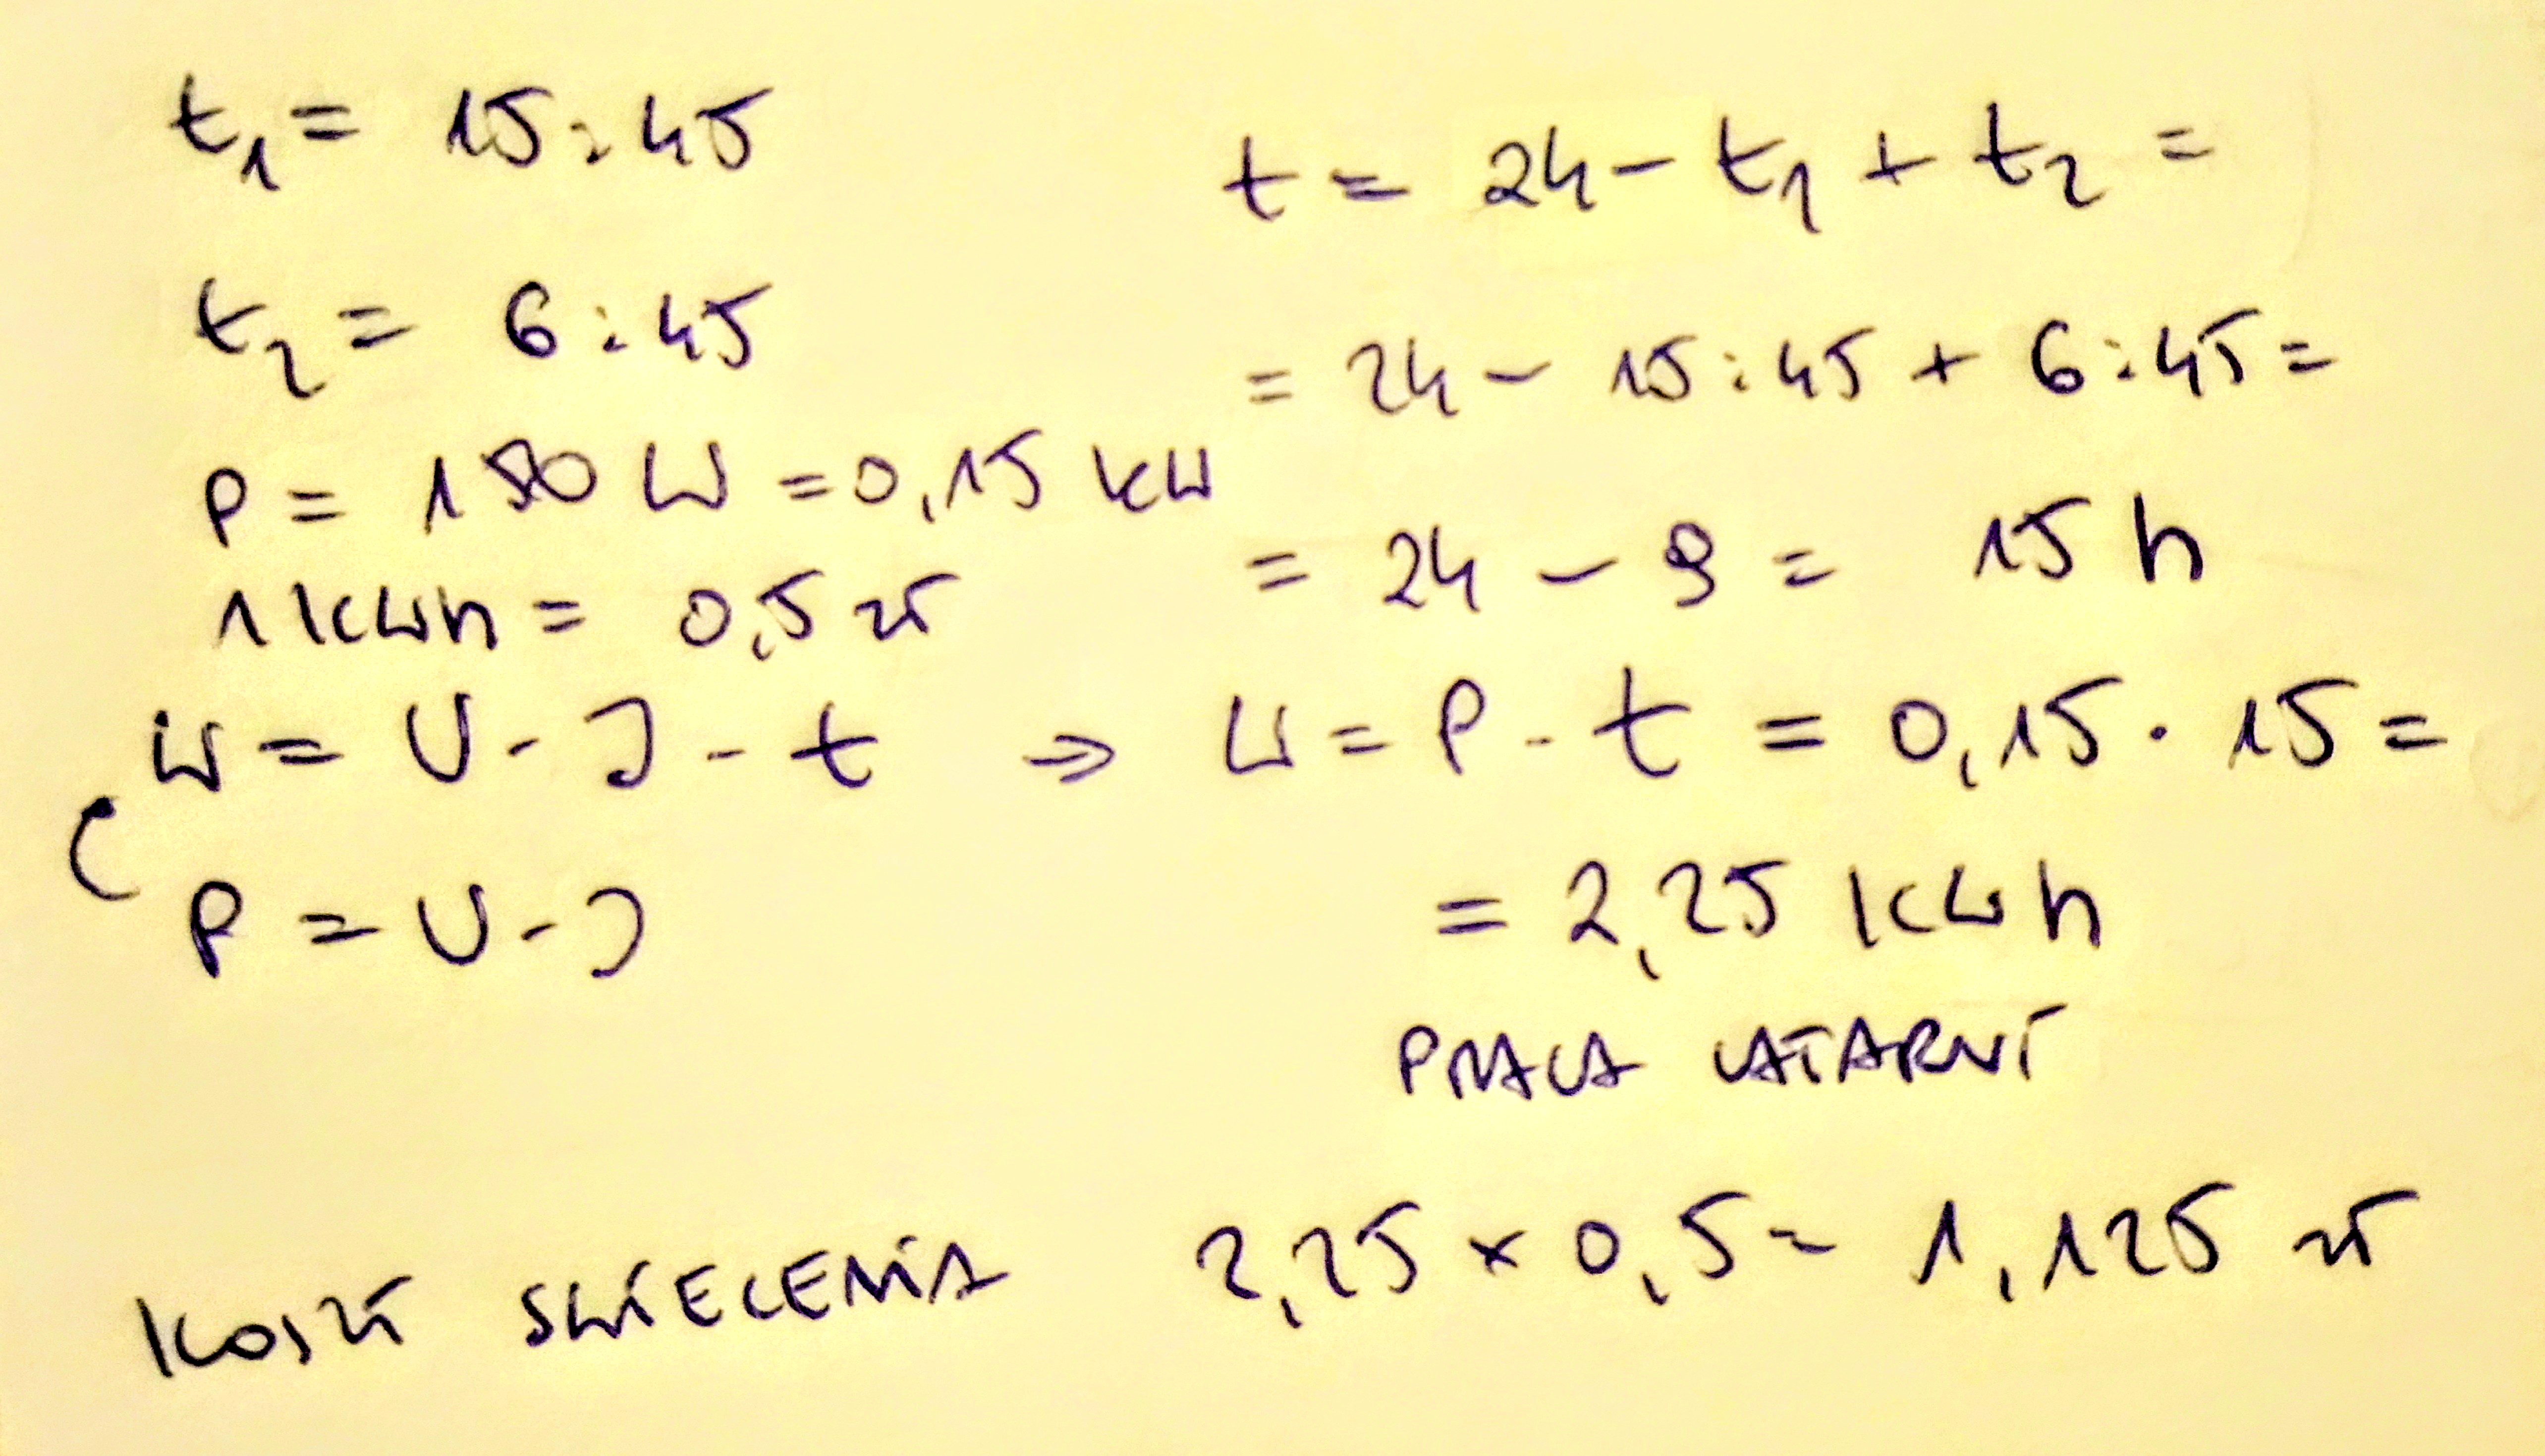 t₁ = 15:45
t₂ = 6:45
P = 150 W = 0,15 kW
1 kWh = 0,5 zł
W = U · J · t ⇒ W = P · t = 0,15 · 15 =
P = U · J
t = 24 - t₁ + t₂ =
= 24 - 15:45 + 6:45 =
= 24 - 9 = 15 h
= 2,25 kWh
PRACA LATARNI
KOSZT ŚWIECENIA 2,25 × 0,5 = 1,125 zł